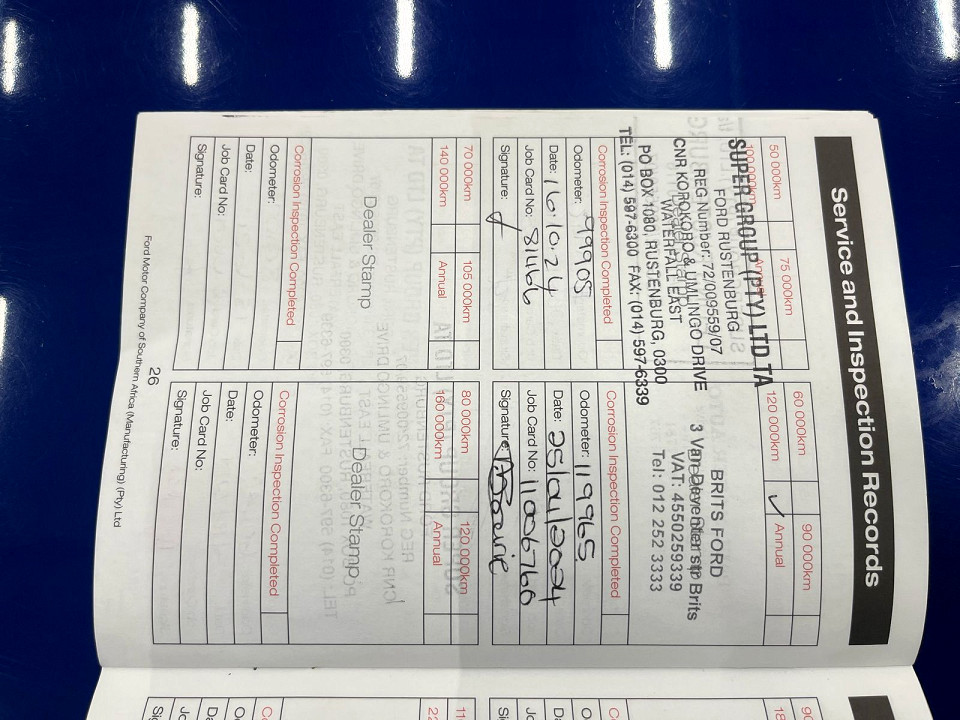 Service and Inspection Records
50 000km 75 000km
100 000km Annual
SUPER GROUP (PTY) LTD TA
FORD RUSTENBURG
REG Number: 72/009559/07
CNR KOROKORO & UMLINGO DRIVE
WATERFALL EAST
PO BOX 1080, RUSTENBURG, 0300
TEL: (014) 597-6300 FAX: (014) 597-6339
Corrosion Inspection Completed
Odometer: 99905
Date: 16.10.24
Job Card No: 81466
Signature:
60 000km 90 000km
120 000km ✓ Annual
BRITS FORD
3 Van Deventer str Brits
VAT: 4550259339
Tel: 012 252 3333
Corrosion Inspection Completed
Odometer: 119965
Date:
Job Card No: 11006766
Signature:
70 000km 105 000km
140 000km Annual
Dealer Stamp
Corrosion Inspection Completed
Odometer:
Date:
Job Card No:
Signature:
80 000km 120 000km
160 000km Annual
Dealer Stamp
Corrosion Inspection Completed
Odometer:
Date:
Job Card No:
Signature:
26
Ford Motor Company of Southern Africa (Manufacturing) (Pty) Ltd